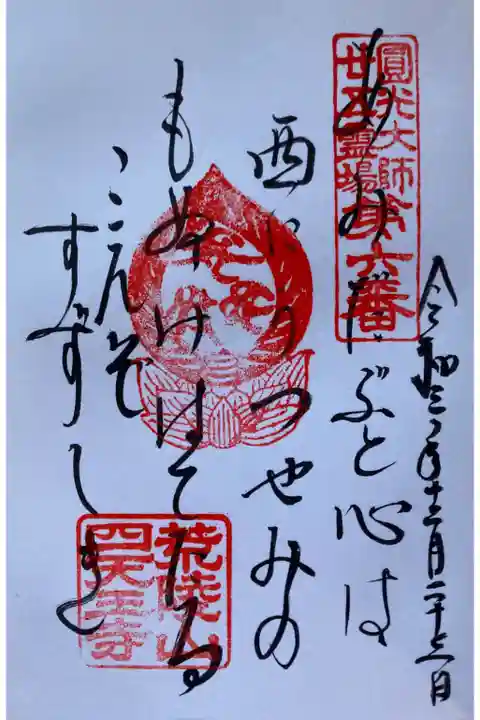 圓光大師
廿五霊場第六番
令和三年十二月二十日
あみだぶと心は
西にうつせみの
もぬけはてたる
こゑぞ
すずしき
荒陵山
四天王寺